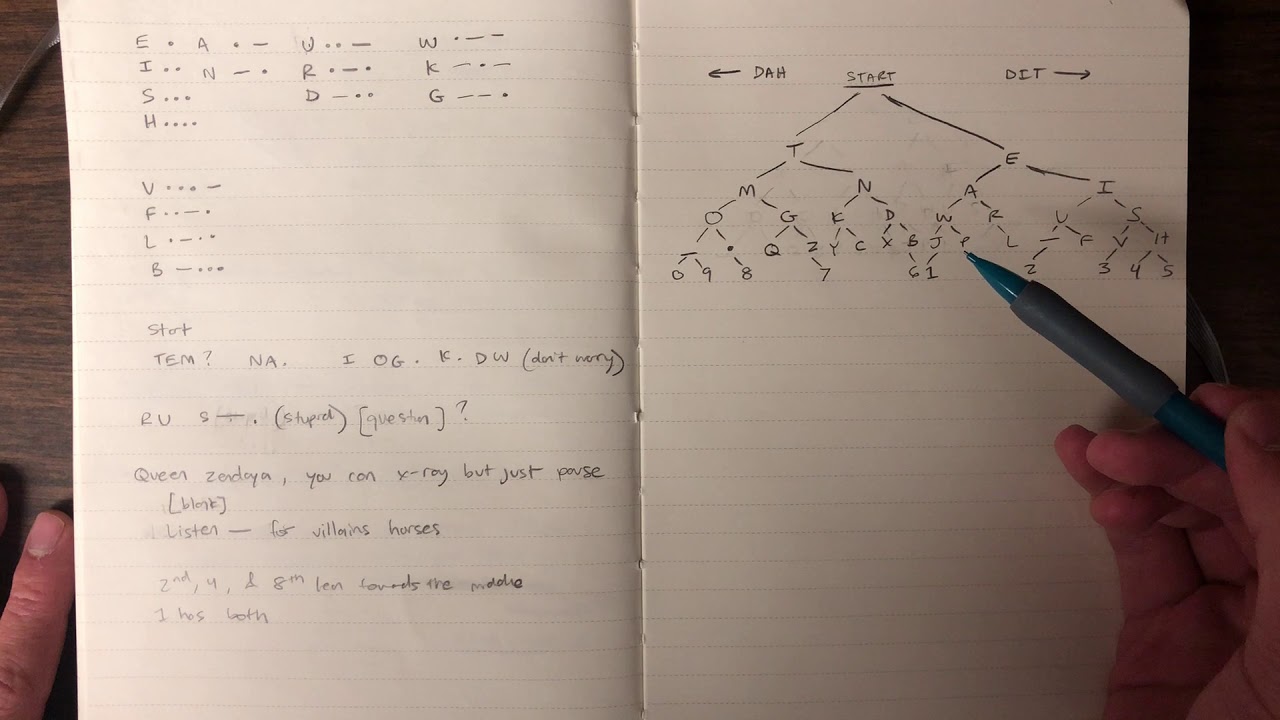 E · A · — U ·· — W · — —
I ·· N — · R · — · K — · —
S ··· D — ·· G — — ·
H ····
V ··· —
F ·· — ·
L · — ··
B — ···
Start
TEM? NA. I OG. K. DW (don't worry)
RU S — . (stupid) [question]?
Queen zendaya, you can x-ray but just pause
[blank]
Listen — for villains horses
2nd, 4, & 8th len towards the middle
1 has both
← DAH START DIT →
T E
M N A I
O G K D W R U S
— · Q Z Y C X B J P L — F V H
0 9 8 7 6 1 2 3 4 5